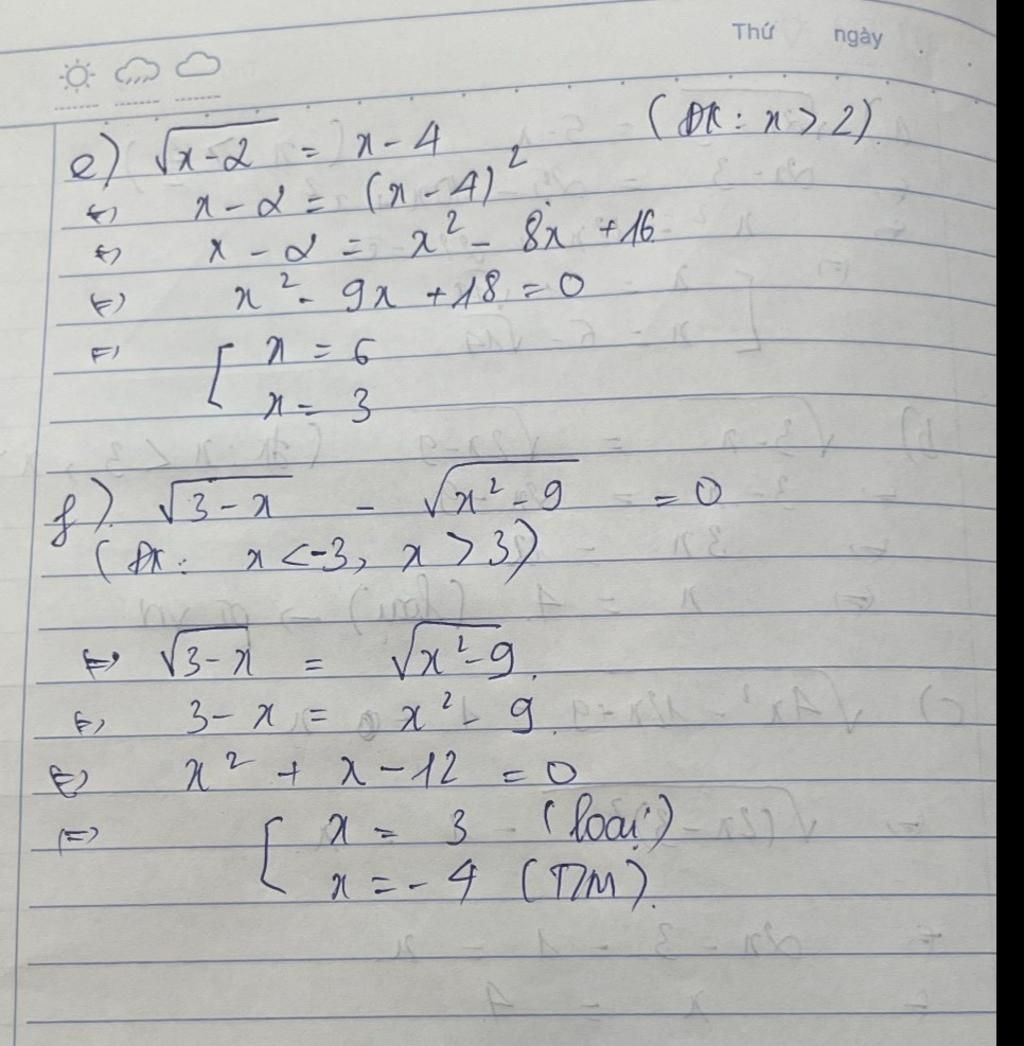 Thứ ngày .
e) √x-2 = x-4 (ĐK: x > 2)
⇔ x-2 = (x-4)²
⇔ x - 2 = x² - 8x + 16
⇔ x² - 9x + 18 = 0
⇔ [ x = 6
x = 3
f) √3-x - √x²-9 = 0
(ĐK: x < -3, x > 3)
⇔ √3-x = √x²-9.
⇔ 3-x = x² - 9.
⇔ x² + x - 12 = 0
⇔ [ x = 3 (loại)
x = -4 (T/M).